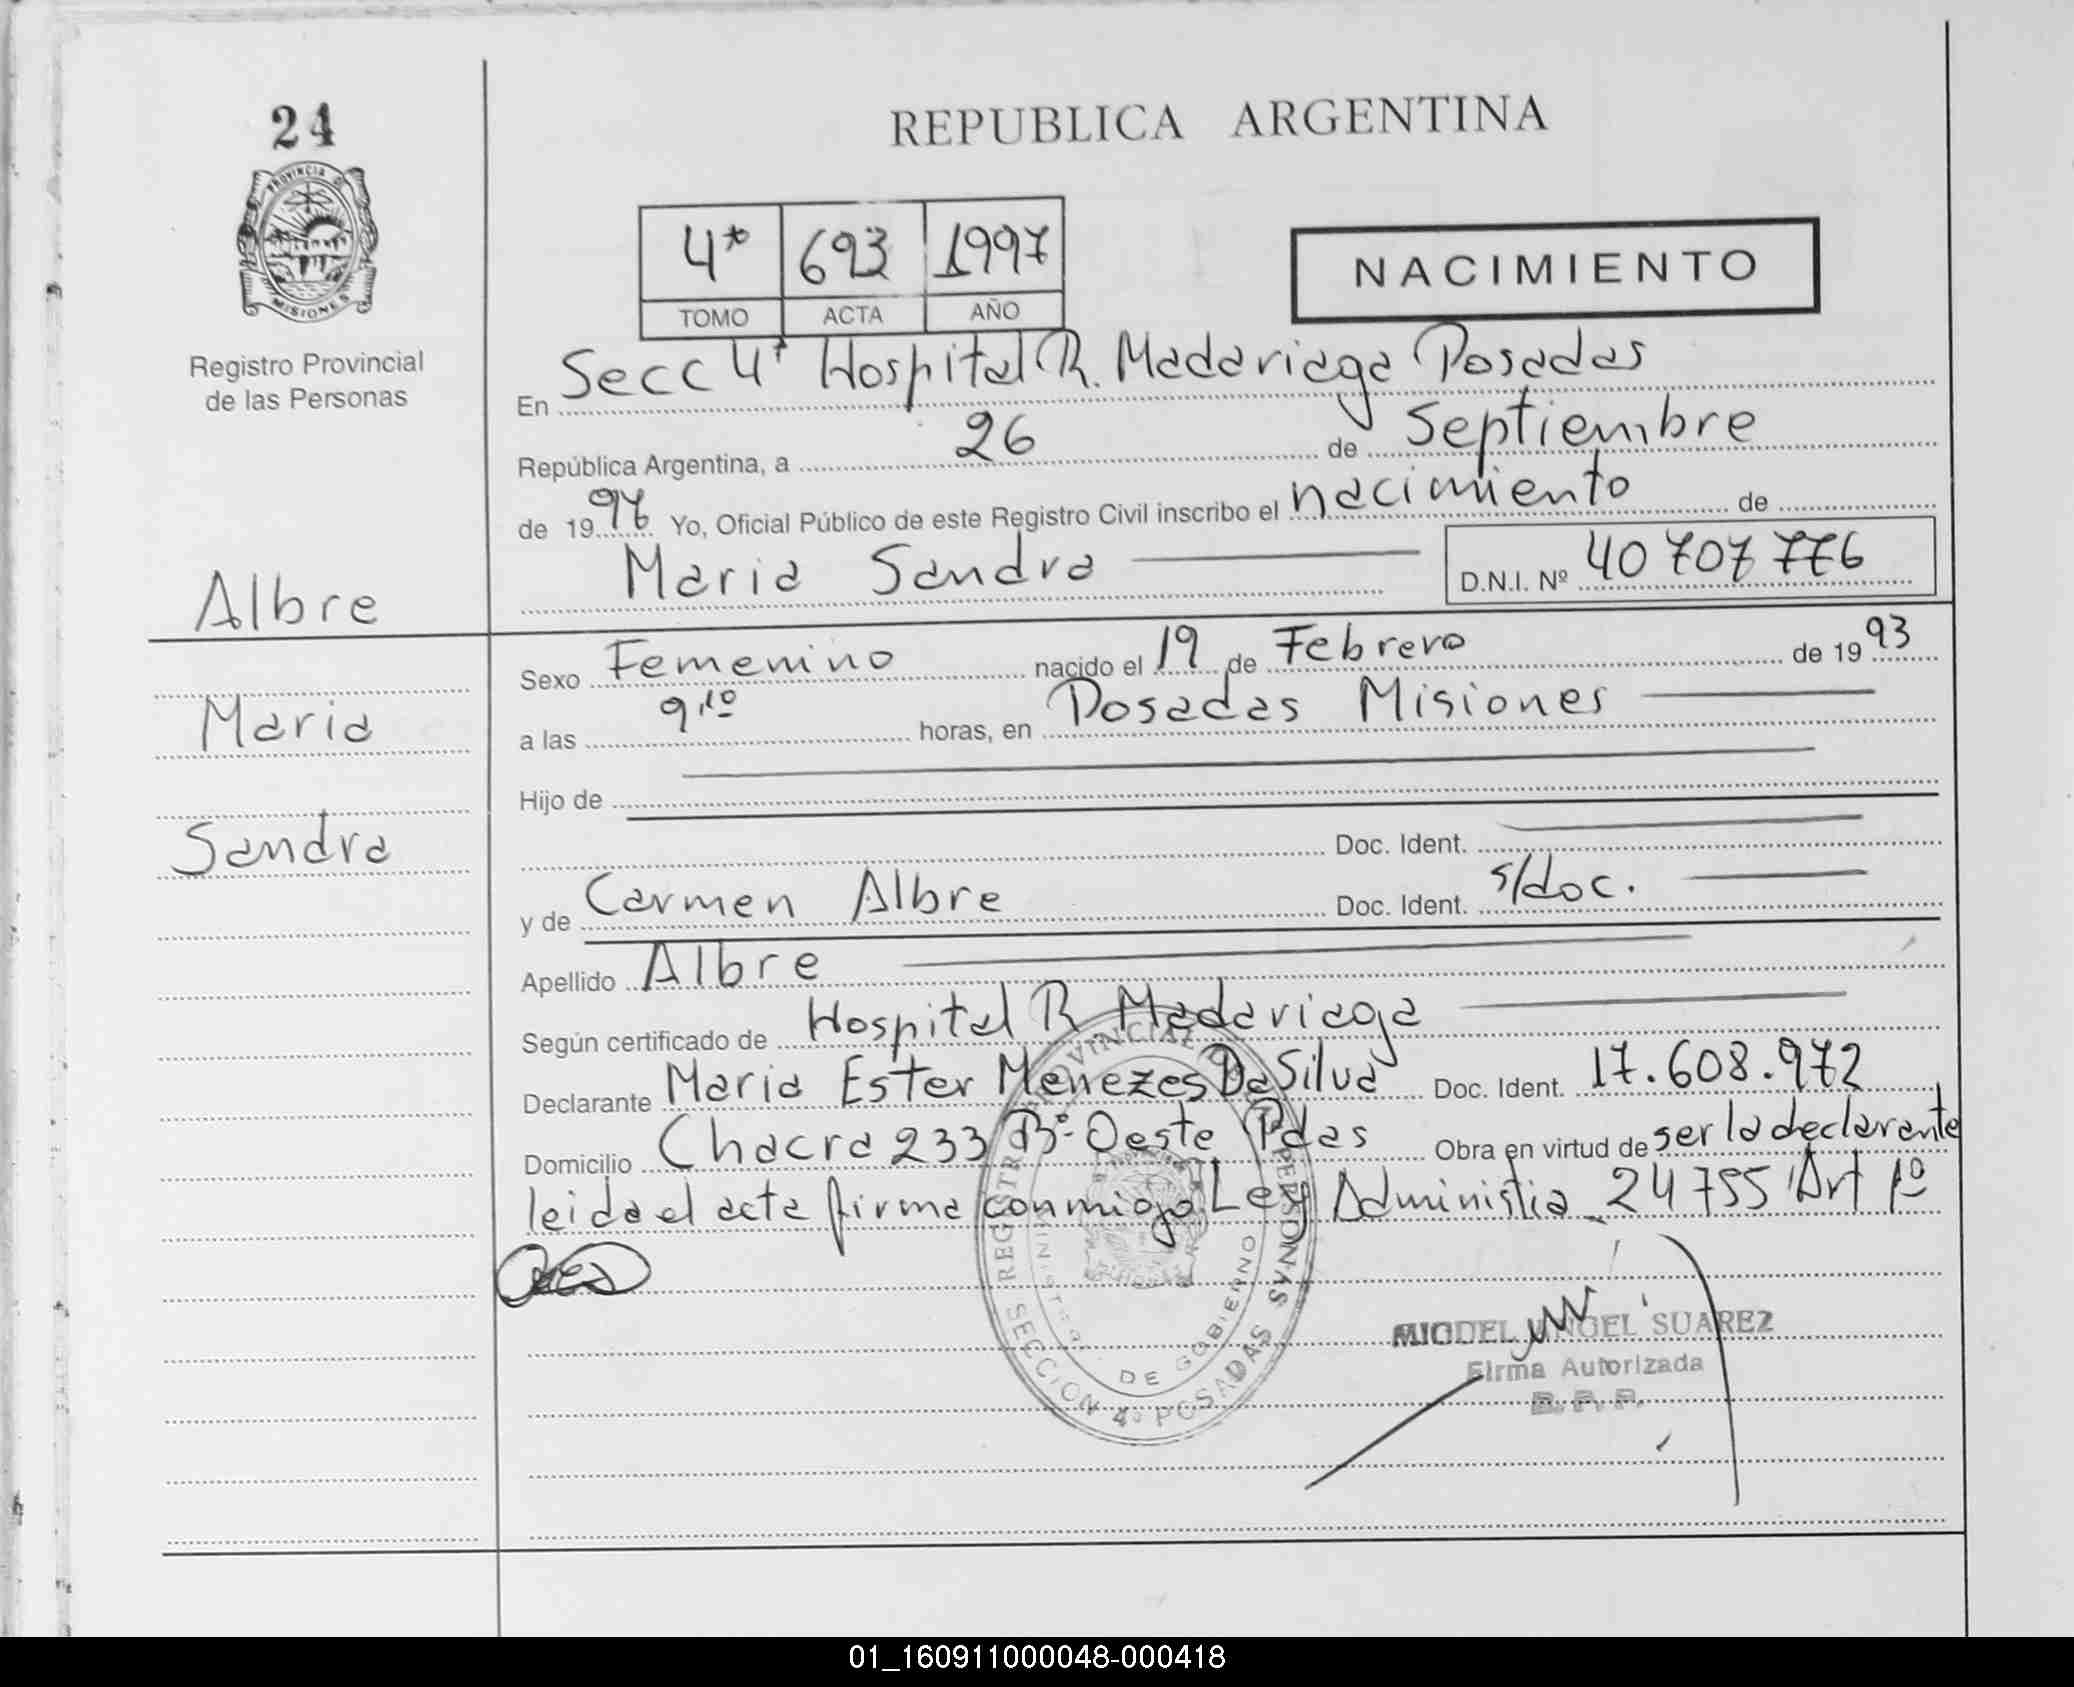 24
REPUBLICA ARGENTINA
PROVINCIA DE
MISIONES
Registro Provincial
de las Personas
4ª 693 1997
TOMO ACTA AÑO
NACIMIENTO
En Secc 4ª Hospital R. Madariaga Posadas
República Argentina, a 26 de Septiembre
de 1997 Yo, Oficial Público de este Registro Civil inscribo el nacimiento de
Maria Sandra D.N.I. Nº 40 707 776
Albre
Maria
Sandra
Sexo Femenino nacido el 19 de Febrero de 1993
a las 9,10 horas, en Posadas Misiones
Hijo de
Doc. Ident.
y de Carmen Albre Doc. Ident. s/doc.
Apellido Albre
Según certificado de Hospital R Madariaga
Declarante Maria Ester Menezes Da Silva Doc. Ident. 17.608.972
Domicilio Chacra 233 Bº Oeste Pdas Obra en virtud de ser la declarante
leida el acta firma conmigo Ley Administia 24755 Art 1º
REGISTRO PROVINCIAL DE LAS PERSONAS
MINISTERIO DE GOBIERNO
SECCION 4ª POSADAS
MIGUEL ANGEL SUAREZ
Firma Autorizada
R. P. P.
01_160911000048-000418